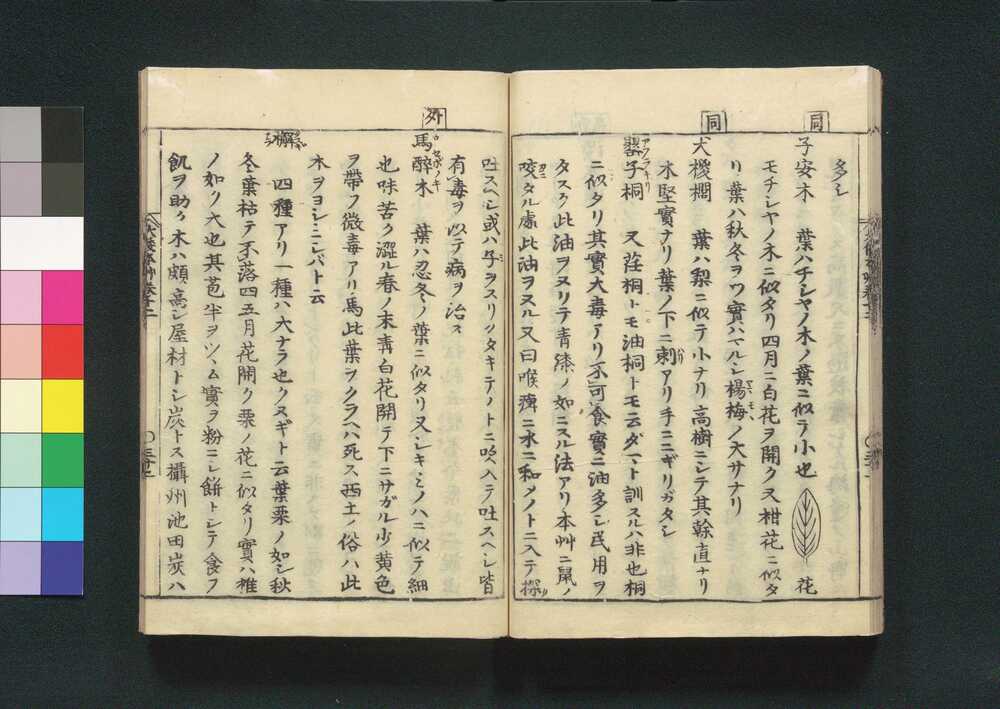 同
多シ
子安木 葉ハチシヤノ木ノ葉ニ似テ小也 花
モチシヤノ木ニ似タリ四月ニ白花ヲ開ク又柑花ニ似タ
リ葉ハ秋冬ヲツ實ハマルシ楊梅ノ大サナリ
同
犬椶櫚 葉ハ梨ニ似テ小ナリ高樹ニシテ其幹直ナリ
木堅實ナリ葉ノ下ニ刺アリ手ニニギリガタシ
罌子桐 又荏桐トモ油桐トモ云ダマト訓スルハ非也桐
アブラギリ
ニ似タリ其實大毒アリ不可食實ニ油多シ民用ヲ
タスク此油ヲヌリテ青漆ノ如ニスル法アリ本艸ニ鼠ノ
咬タル處此油ヲヌル又曰喉痺ニ水ニ和メノトニ入テ探
吐スヘシ或ハ子ヲスリツタキテノトニ吹入テ吐スヘシ皆
有毒ヲ以テ病ヲ治ス
外
馬醉木 葉ハ忍冬ノ葉ニ似タリ又シキミノハニ似テ細
也味苦ク澀ル春ノ末青白花開テ下ニサガル少黄色
ヲ帶フ微毒アリ馬此葉ヲクラヘハ死ス西土ノ俗ハ此
木ヲヨシミシバト云
槲
四種アリ一種ハ大ナラ也クヌギト云葉栗ノ如シ秋
冬葉枯テ不落四五月花開ク栗ノ花ニ似タリ實ハ椎
ノ如ク大也其苞半ヲツヽム實ヲ粉ニシ餅トシテ食フ
飢ヲ助ク木ハ頗高シ屋材トシ炭トス攝州池田炭ハ